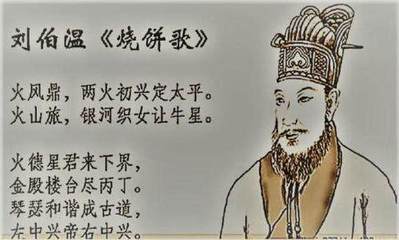 刘伯温《烧饼歌》
火风鼎，两火初兴定太平。
火山旅，银河织女让牛星。
火德星君来下界，
金殿楼台尽丙丁。
琴瑟和谐成古道，
左中兴帝右中兴。